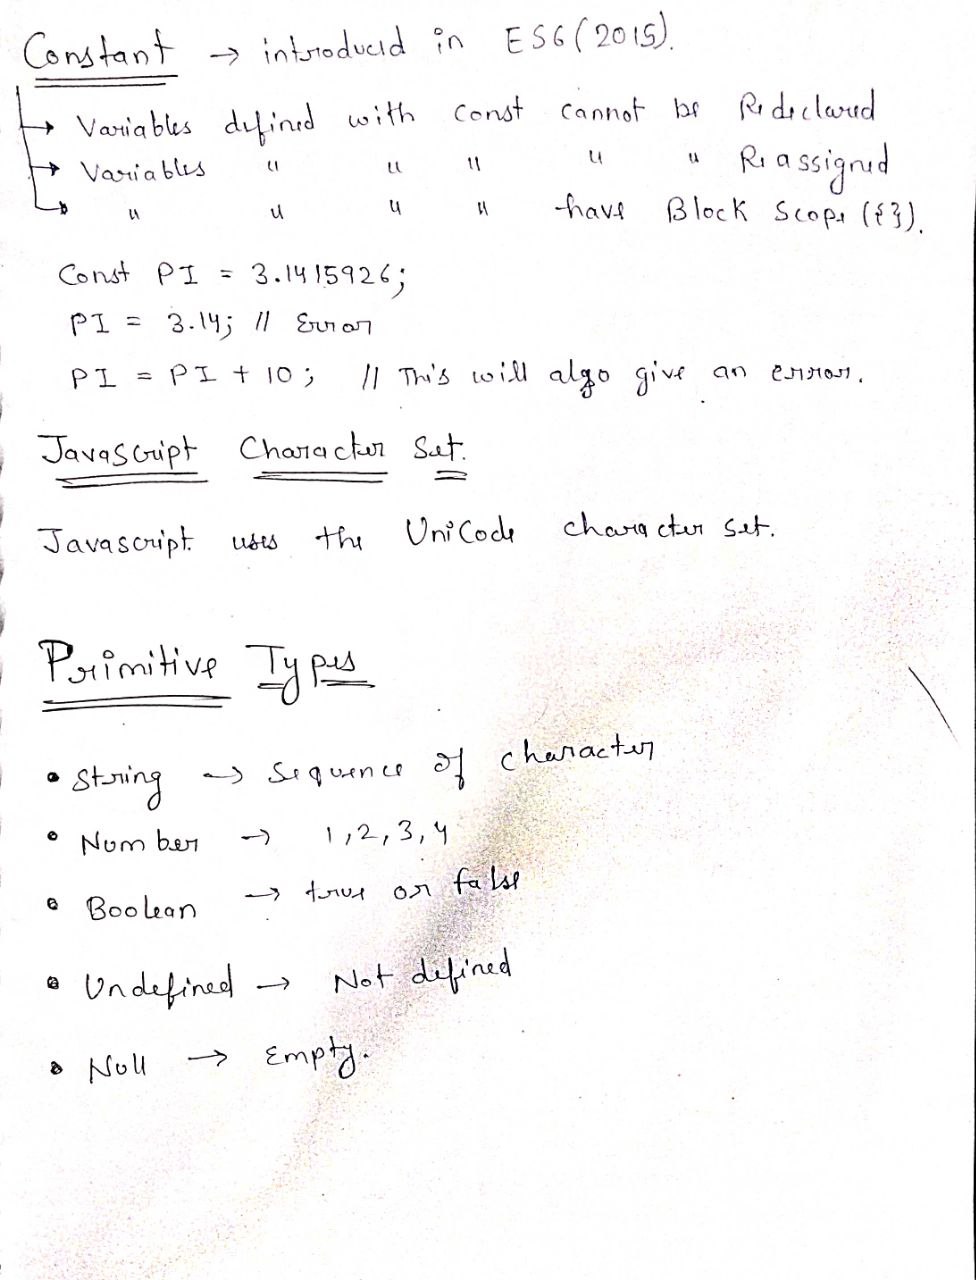 Constant → introduced in ES6(2015).
→ Variables defined with const cannot be Redeclared
→ Variables " " " " " Reassigned
→ " " " " have Block Scope ({}).
Const PI = 3.1415926;
PI = 3.14; // Error
PI = PI + 10; // This will also give an error.
JavaScript Character Set.
Javascript uses the UniCode character set.
Primitive Types
• String → Sequence of character
• Number → 1,2,3,4
• Boolean → true or false
• Undefined → Not defined
• Null → Empty.